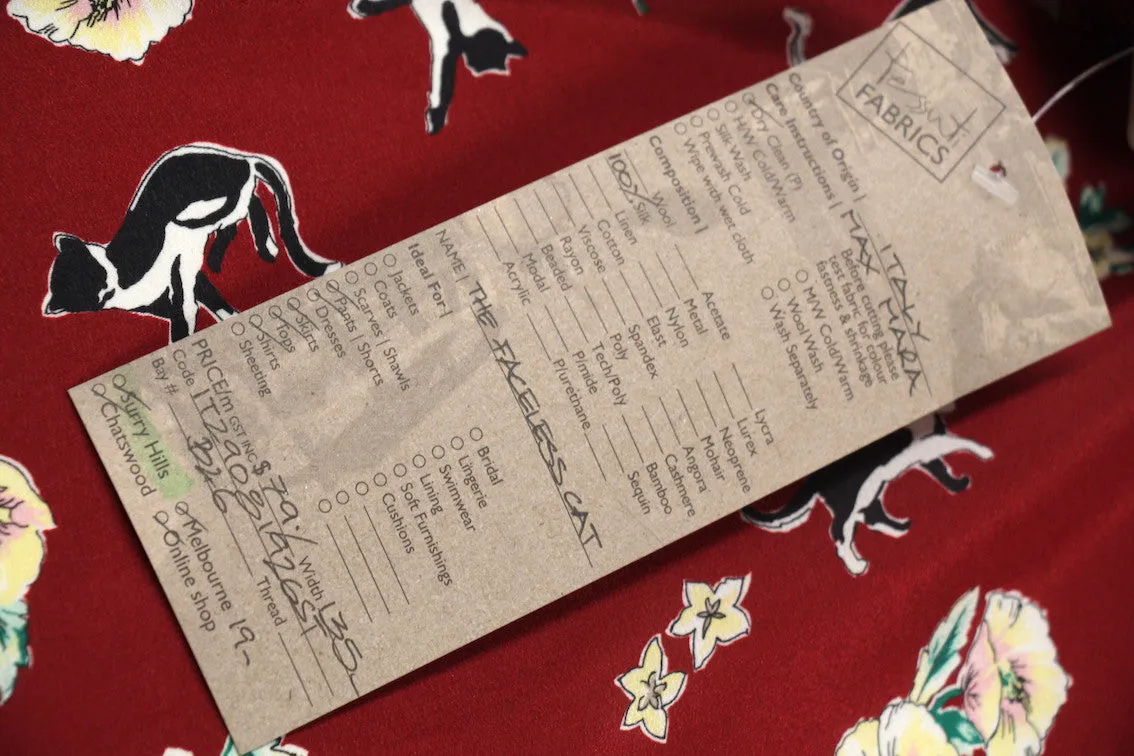 Tessuti
FABRICS
Country of Origin | ITALY
MAX MARA
Care Instructions | Before cutting please
test fabric for colour
fastness & shrinkage
Dry Clean (P)
H/W Cold/Warm
M/W Cold/Warm
Silk Wash
Wool Wash
Prewash Cold
Wash Separately
Wipe with wet cloth
Composition |
Wool Acetate Lycra
100% Silk Metal Lurex
Linen Nylon Neoprene
Cotton Elast Mohair
Viscose Spandex Angora
Rayon Poly Cashmere
Beaded Tech/Poly Bamboo
Modal P/mide Sequin
Acrylic P/urethane
NAME | THE FACELESS CAT
Ideal For |
Jackets Bridal
Coats Lingerie
Scarves | Shawls Swimwear
Pants | Shorts Lining
Dresses Soft Furnishings
Skirts Cushions
Tops
Shirts
Sheeting
PRICE/m GST INC $ 79.- Width 135
Code
Bay # B26 Thread
Surry Hills Melbourne 19-
Chatswood Online shop